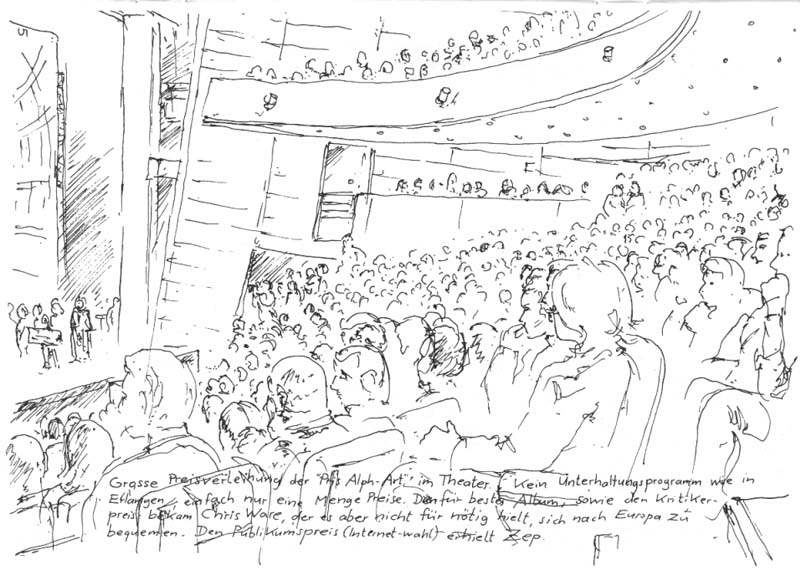 Grosse Preisverleihung der "Prix Alph-Art" im Theater. Kein Unterhaltungsprogramm wie in
Erlangen, einfach nur eine Menge Preise. Den für bestes Album, sowie den Kritiker-
preis bekam Chris Ware, der es aber nicht für nötig hielt, sich nach Europa zu
bequemen. Den Publikumspreis (Internet-wahl) erhielt Zep.